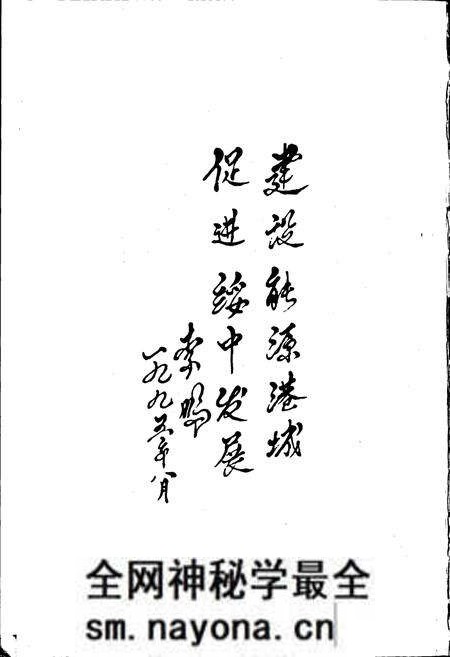 建设能源港城
促进绥中发展
李鹏
一九九五年八月
全网神秘学最全
sm.nayona.cn